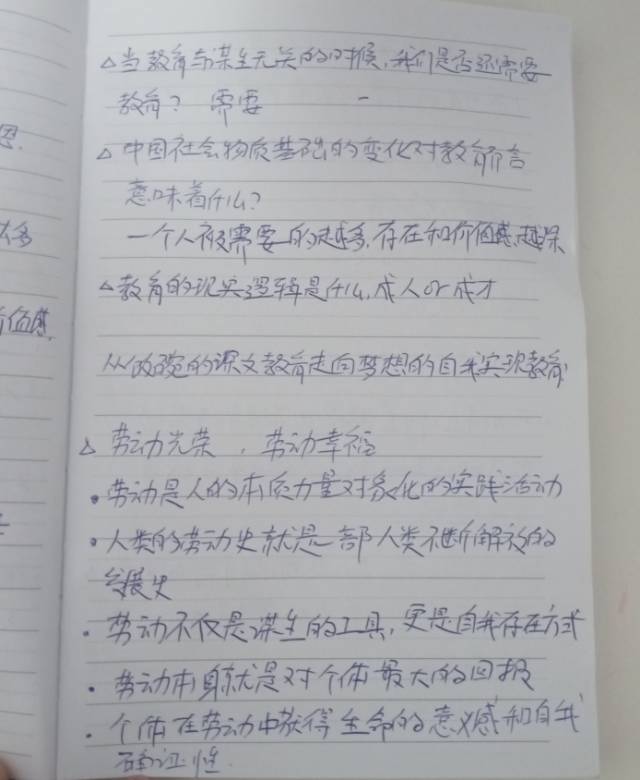 △当教育与谋生无关的时候,我们是否还需要
教育? 需要
△中国社会物质基础的变化对教育而言
意味着什么?
一个人被需要的越多,存在和价值感越深
△教育的现实逻辑是什么,成人or成才
的课文教育走向梦想的自我实现教育
△劳动光荣,劳动幸福
•劳动是人的本质力量对象化的实践活动
•人类的劳动史就是一部人类不断解放的
发展史
•劳动不仅是谋生的工具,更是自我存在方式
•劳动本身就是对个体最大的回报
•个体在劳动中获得生命的意义感和自我
确证性.
恩.
值感.